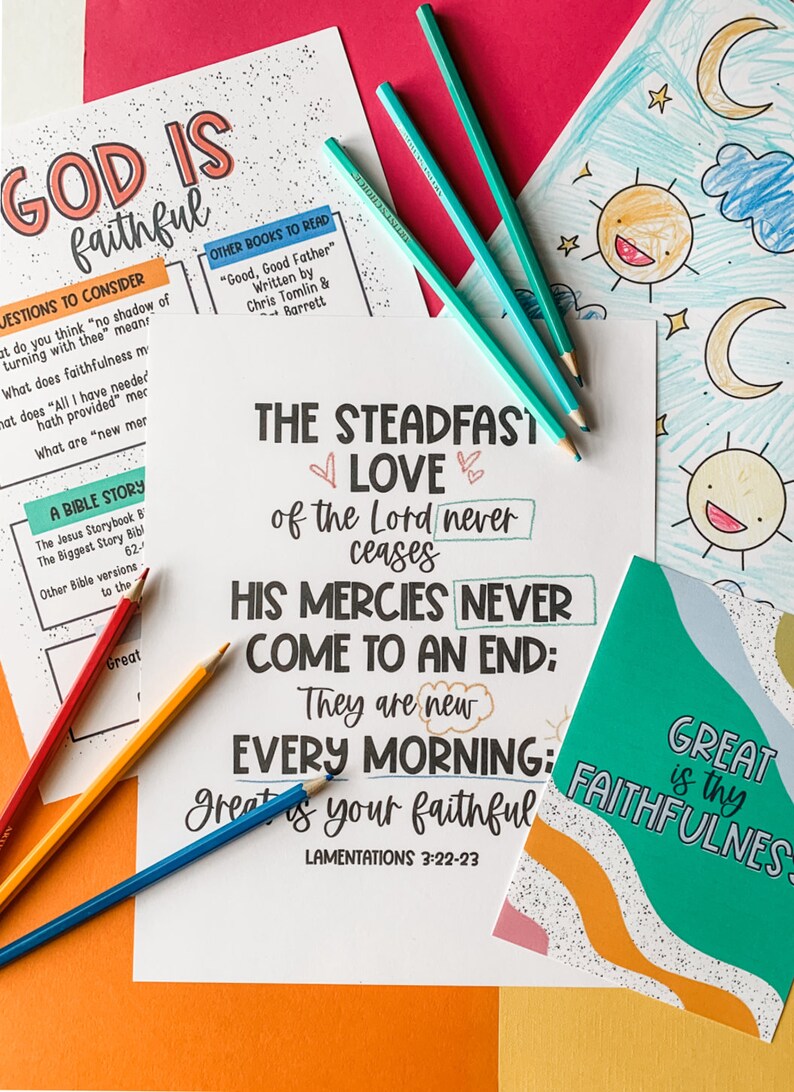 GOD IS
faithful
OTHER BOOKS TO READ
"Good, Good Father"
Written by
Chris Tomlin &
Barrett
QUESTIONS TO CONSIDER
do you think "no shadow of
turning with thee" means
What does faithfulness
does "All I have needed
hath provided"
What are "new
A BIBLE STORY
The Jesus Storybook
The Biggest Story
62-
Other Bible versions
to the
Great
THE STEADFAST
LOVE
of the Lord never
ceases
HIS MERCIES NEVER
COME TO AN END;
They are new
EVERY MORNING;
great is your faithful
LAMENTATIONS 3:22-23
GREAT
is thy
FAITHFULNESS
ARTIST'S CHOICE